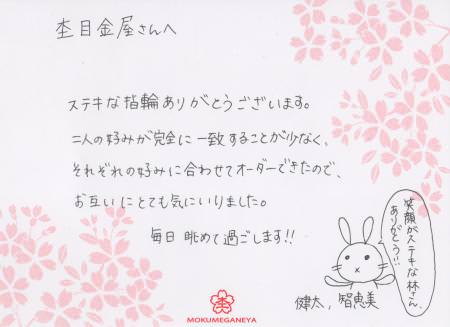 杢目金屋さんへ
ステキな指輪ありがとうございます。
二人の好みが完全に一致することが少なく、
それぞれの好みに合わせてオーダーできたので、
お互いにとても気にいりました。
毎日 眺めて過ごします!!
笑顔がステキな林さん、
ありがとう!!
健太, 智恵美
MOKUMEGANEYA